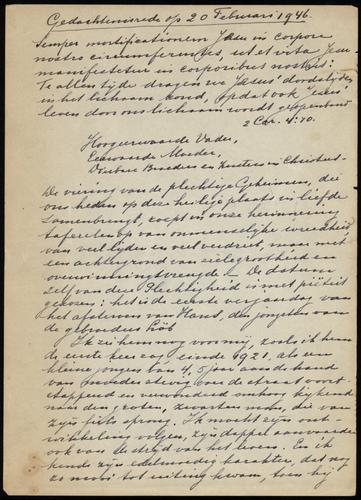 Gedachtenisrede op 20 Februari 1946.
Semper mortificationem Jesu in corpore
nostro circumferentes, ut et vita Jesu
manifestetur in corporibus nostris:
Te allen tijde dragen we Jesus' doodelijden
in het lichaam rond, opdat ook Jesus'
leven door ons lichaam wordt geopenbaard
2 Cor. 4:10.
Hoogeerwaarde Vader,
Eerwaarde Moeder,
Dierbare Broeders en Zusters in Christus.
De viering van de plechtige Geheimen, die
ons heden op deze heilige plaats in liefde
samenbrengt, roept in onze herinnering
tafereelen op van onmenselijke wreedheid
van veel lijden en veel verdriet, maar met
een achtergrond van zielegrootheid en
overwinningsvreugde. De datum
zelf van deze Plechtigheid is met piëteit
gekozen: het is de eerste verjaardag van
het afsterven van Hans, den jongsten van
de gebroeders Löb
Ik zie hem nog voor mij, zoals ik hem
de eerste keer zag einde 1921, als een
kleine jongen van 4, 5 jaar aan de hand
van Moeder stevig over de straat voort-
stappend en verwonderd omhoog kijkend
naar den groten, zwarten man, die van
zijn fiets sprong. Ik mocht zijn ont-
wikkeling volgen, zijn dapper aanvaarden
ook van de strijd van het leven. En ik
kende zijn edelmoedig karakter, dat nog
zo mooi tot uiting kwam, toen hij